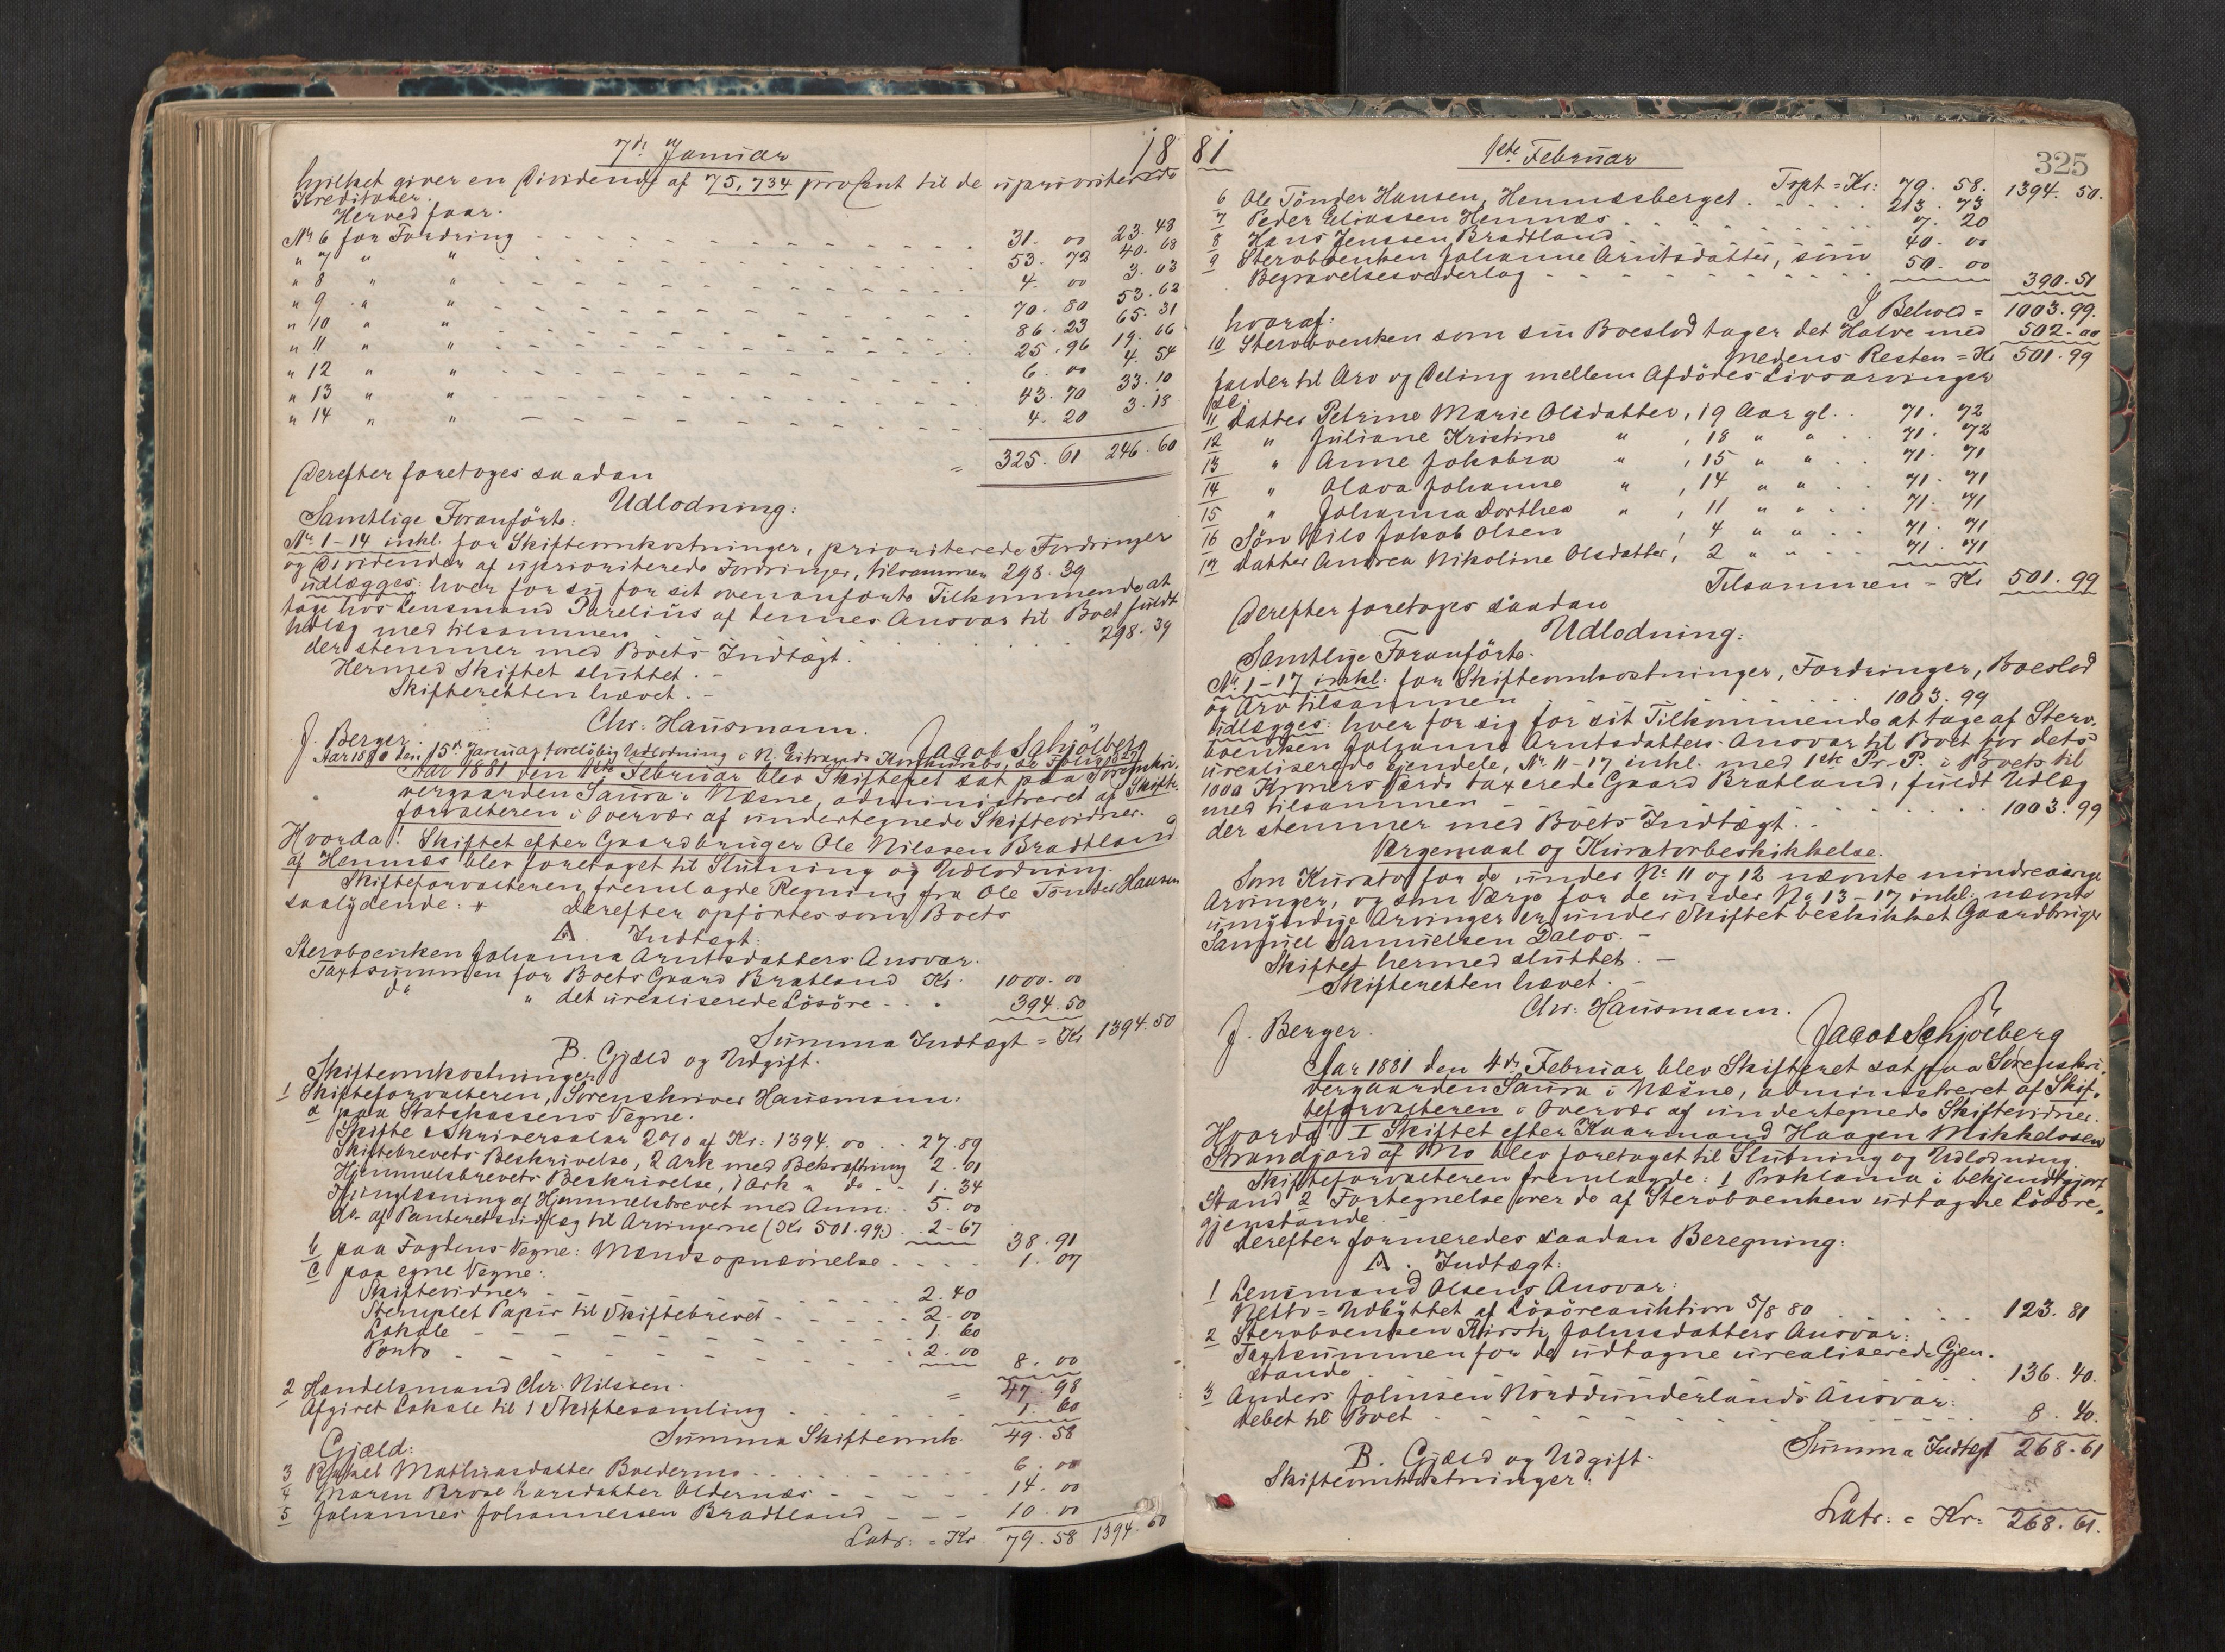 7de Januar
18
hvilket giver en Dividende af 75,734 proCent til de uprioriterede
Kreditorer.
Herved faar.
No 6 for Fordring 31. 00 23. 48
" 7 " " 53. 72 40. 68
" 8 " " 4. 00 3. 03
" 9 " " 70. 80 53. 62
" 10 " " 86. 23 65. 31
" 11 " " 25. 96 19. 66
" 12 " " 6. 00 4. 54
" 13 " " 43. 70 33. 10
" 14 " " 4. 20 3. 18
= 325. 61 246. 60
Derefter foretoges saadan
Udlodning:
Samtlige Foranførte:
No 1-14 inkl. for Skifteomkostninger, prioriterede Fordringer
og Dividender af uprioriterede Fordringer, tilsammen 298. 39
udlægges: hver for sig for sit ovenanførte Tilkommende at
tage hos Lensmand Parelius af dennes Ansvar til Boet fuldt
Udlæg med tilsammen 298. 39
der stemmer med Boets Indtægt.
Hermed Skiftet sluttet. -
Skifteretten hævet. -
Chr: Hausmann.
J. Berger. Jacob Schjölberg
Aar 1881 den 1ste Februar blev Skifteret sat paa Sorenskri-
vergaarden Saura i Næsne, administreret af Skifte-
forvalteren i Overvær af undertegnede Skiftevidner.
Hvorda! Skiftet efter Gaardbruger Ole Nilssen Bradtland
af Hemnæs blev foretaget til Slutning og Udlodning.
Skifteforvalteren fremlagde Regning fra Ole Tønder Hansen
saalydende: + Derefter opførtes som Boets
A. Indtægt:
Stervboenken Johanna Arntsdatters Ansvar.
Taxtsummen for Boets Gaard Bratland Kr. 1000. 00
do " det urealiserede Løsøre 394. 50
Summa Indtægt = Kr 1394. 50
B. Gjæld og Udgift.
Skifteomkostninger
1 Skifteforvalteren, Sorenskriver Hausmann:
a paa Statskassens Vegne.
Skifte & Skriversalær 2% af Kr: 1394. 00 27. 89
Skiftebrevets Beskrivelse, 2 Ark med Bekræftning 2. 01
Hjemmelsbrevets Beskrivelse, 1 Ark " do 1. 34
Thinglæsning af Hjemmelsbrevet med Anm: 5. 00
do af Panteretsudlæg til Arvingerne (Kr 501. 99.) 2. 67
38. 91
b paa Fogdens Vegne: Mændsopnævnelse 1. 07
c paa egne Vegne:
Skiftevidner 2. 40
Stemplet Papir til Skiftebrevet 2. 00
Lokale 1. 60
Porto 2. 00
8. 00
= 47. 98
2 Handelsmand Chr. Nilssen.
Afgivet Lokale til 1 Skiftesamling 1. 60
Summa Skifteomk. 49. 58
Gjæld:
3 Mathiasdatter 6. 00
4 Maren Larsdatter Oldernæs 14. 00
5 Johannes Johannessen Bradtland 10. 00
Latr: = Kr 79. 58 1394. 50
81
1ste Februar
325
Trpt = Kr: 79. 58. 1394. 50.
6 Ole Tønder Hansen, Hemnæsberget 213. 73
7 Peder Eliassen Hemnæs 7. 20
8 Hans Jenssen Bradtland 40. 00
9 Stervboenken Johanne Arntsdatter, som
Begravelsesvederlag 50. 00
390. 51
I Behold = 1003. 99.
hvoraf:
10 Stervboenken som sin Boeslod tager det Halve med 502. 00
medens Resten = Kr 501. 99
falder til Arv og Deling mellem Afdødes Livsarvinger
sc:
11 Datter Petrine Marie Olsdatter, 19 Aar gl. 71. 72
12 " Juliane Kristine " , 18 " " 71. 72
13 " Anne Jakobra " , 15 " " 71. 71
14 " Olava Johanne " , 14 " " 71. 71
15 " Johanna Dorthea " , 11 " " 71. 71
16 Søn Nils Jakob Olsen , 4 " " 71. 71
17 Datter Andrea Nikoline Olsdatter, 2 " " 71. 71
Tilsammen = Kr 501. 99
Derefter foretoges saadan
Udlodning:
Samtlige Foranførte.
No 1-17 inkl. for Skifteomkostninger, Fordringer, Boeslod
og Arv tilsammen 1003. 99
udlægges: hver for sig for sit Tilkommende at tage af Sterv-
boenken Johanne Arntsdatters Ansvar til Boet for dets
urealiserede Ejendele, No 11-17 inkl. med 1ste Pr. P. i Boets til
1000 Kroners Værdi taxerede Gaard Bratland, fuldt Udlæg
med tilsammen 1003. 99
der stemmer med Boets Indtægt. -
Værgemaal og Kuratorbeskikkelse.
Som Kurator for de under No 11 og 12 nævnte mindreaarige
Arvinger, og som Værge for de under No 13-17 inkl. nævnte
umyndige Arvinger er under Skiftet beskikket Gaardbruger
Samuel Samuelsen Dalos. -
Skiftet hermed sluttet. -
Skifteretten hævet. -
Chr. Hausmann.
J. Berger. Jacob Schjölberg
Aar 1881 den 4de Februar blev Skifteret sat paa Sorenskri-
vergaarden Saura i Næsne, administreret af Skif-
teforvalteren i Overvær af undertegnede Skiftevidner.
Hvorda! I Skiftet efter Kaarmand Haagen Mikkelssen
Strandjord af Mo blev foretaget til Slutning og Udlodning.
Skifteforvalteren fremlagde: 1 Proklama i bekjendtgjort
Stand 2 Fortegnelse over de af Stervboenken udtagne Løsøre-
gjenstande. -
Derefter formeredes saadan Beregning:
A. Indtægt:
1 Lensmand Olsens Ansvar:
Netto = Udbyttet af Løsøreauktion 5/8 80 123. 81
2 Stervboenken Kirsti Johnsdatters Ansvar:
Taxtsummen for de udtagne urealiserede Gjen-
stande 136. 40.
3 Anders Johnsen Norddunderlands Ansvar:
Debet til Boet 8. 40.
Summa Indtægt 268. 61
B. Gjæld og Udgift.
Skifteomkostninger:
Latr: = Kr: 268. 61.